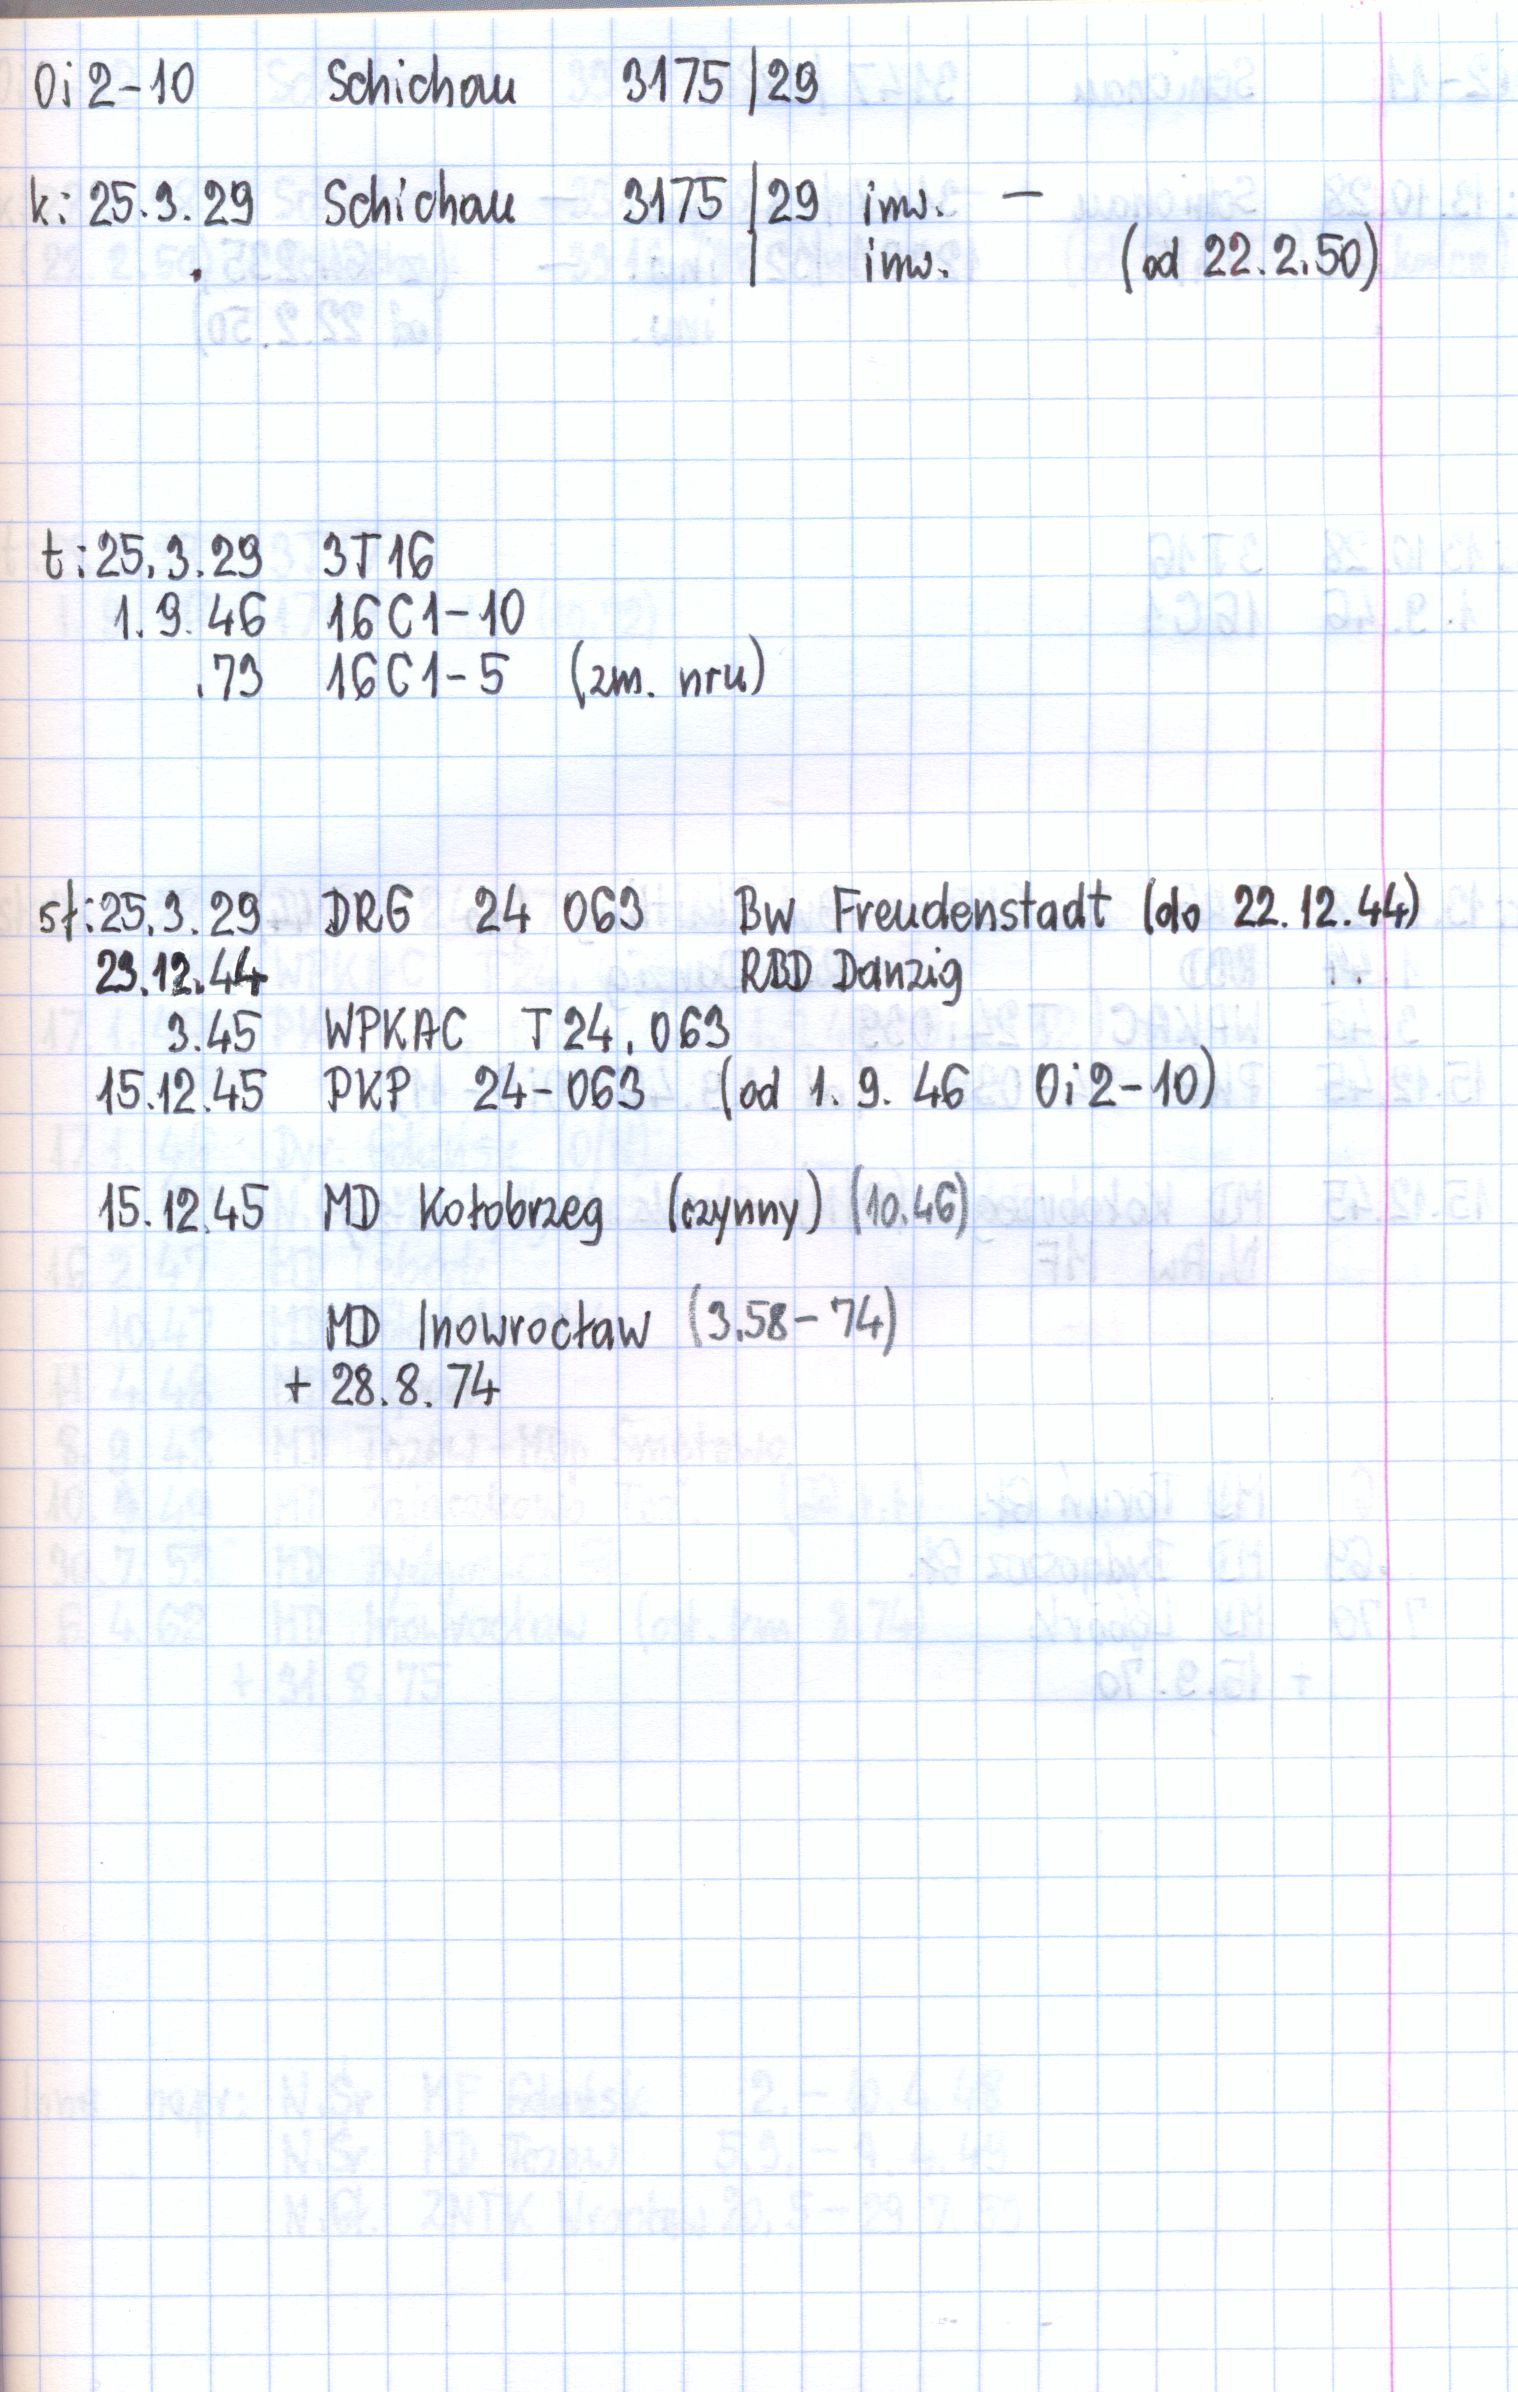 Oi2-10 Schichau 3175/29
k: 25.3.29 Schichau 3175/29 inw. —
. / inw. (od 22.2.50)
t: 25.3.29 3T16
1.9.46 16C1-10
.73 16C1-5 (zm. nru)
st: 25.3.29 DRG 24 063 Bw Freudenstadt (do 22.12.44)
23.12.44 RBD Danzig
3.45 WPKAC T24.063
15.12.45 PKP 24-063 (od 1.9.46 Oi2-10)
15.12.45 MD Kołobrzeg (czynny) (10.46)
MD Inowrocław (3.58-74)
+ 28.8.74